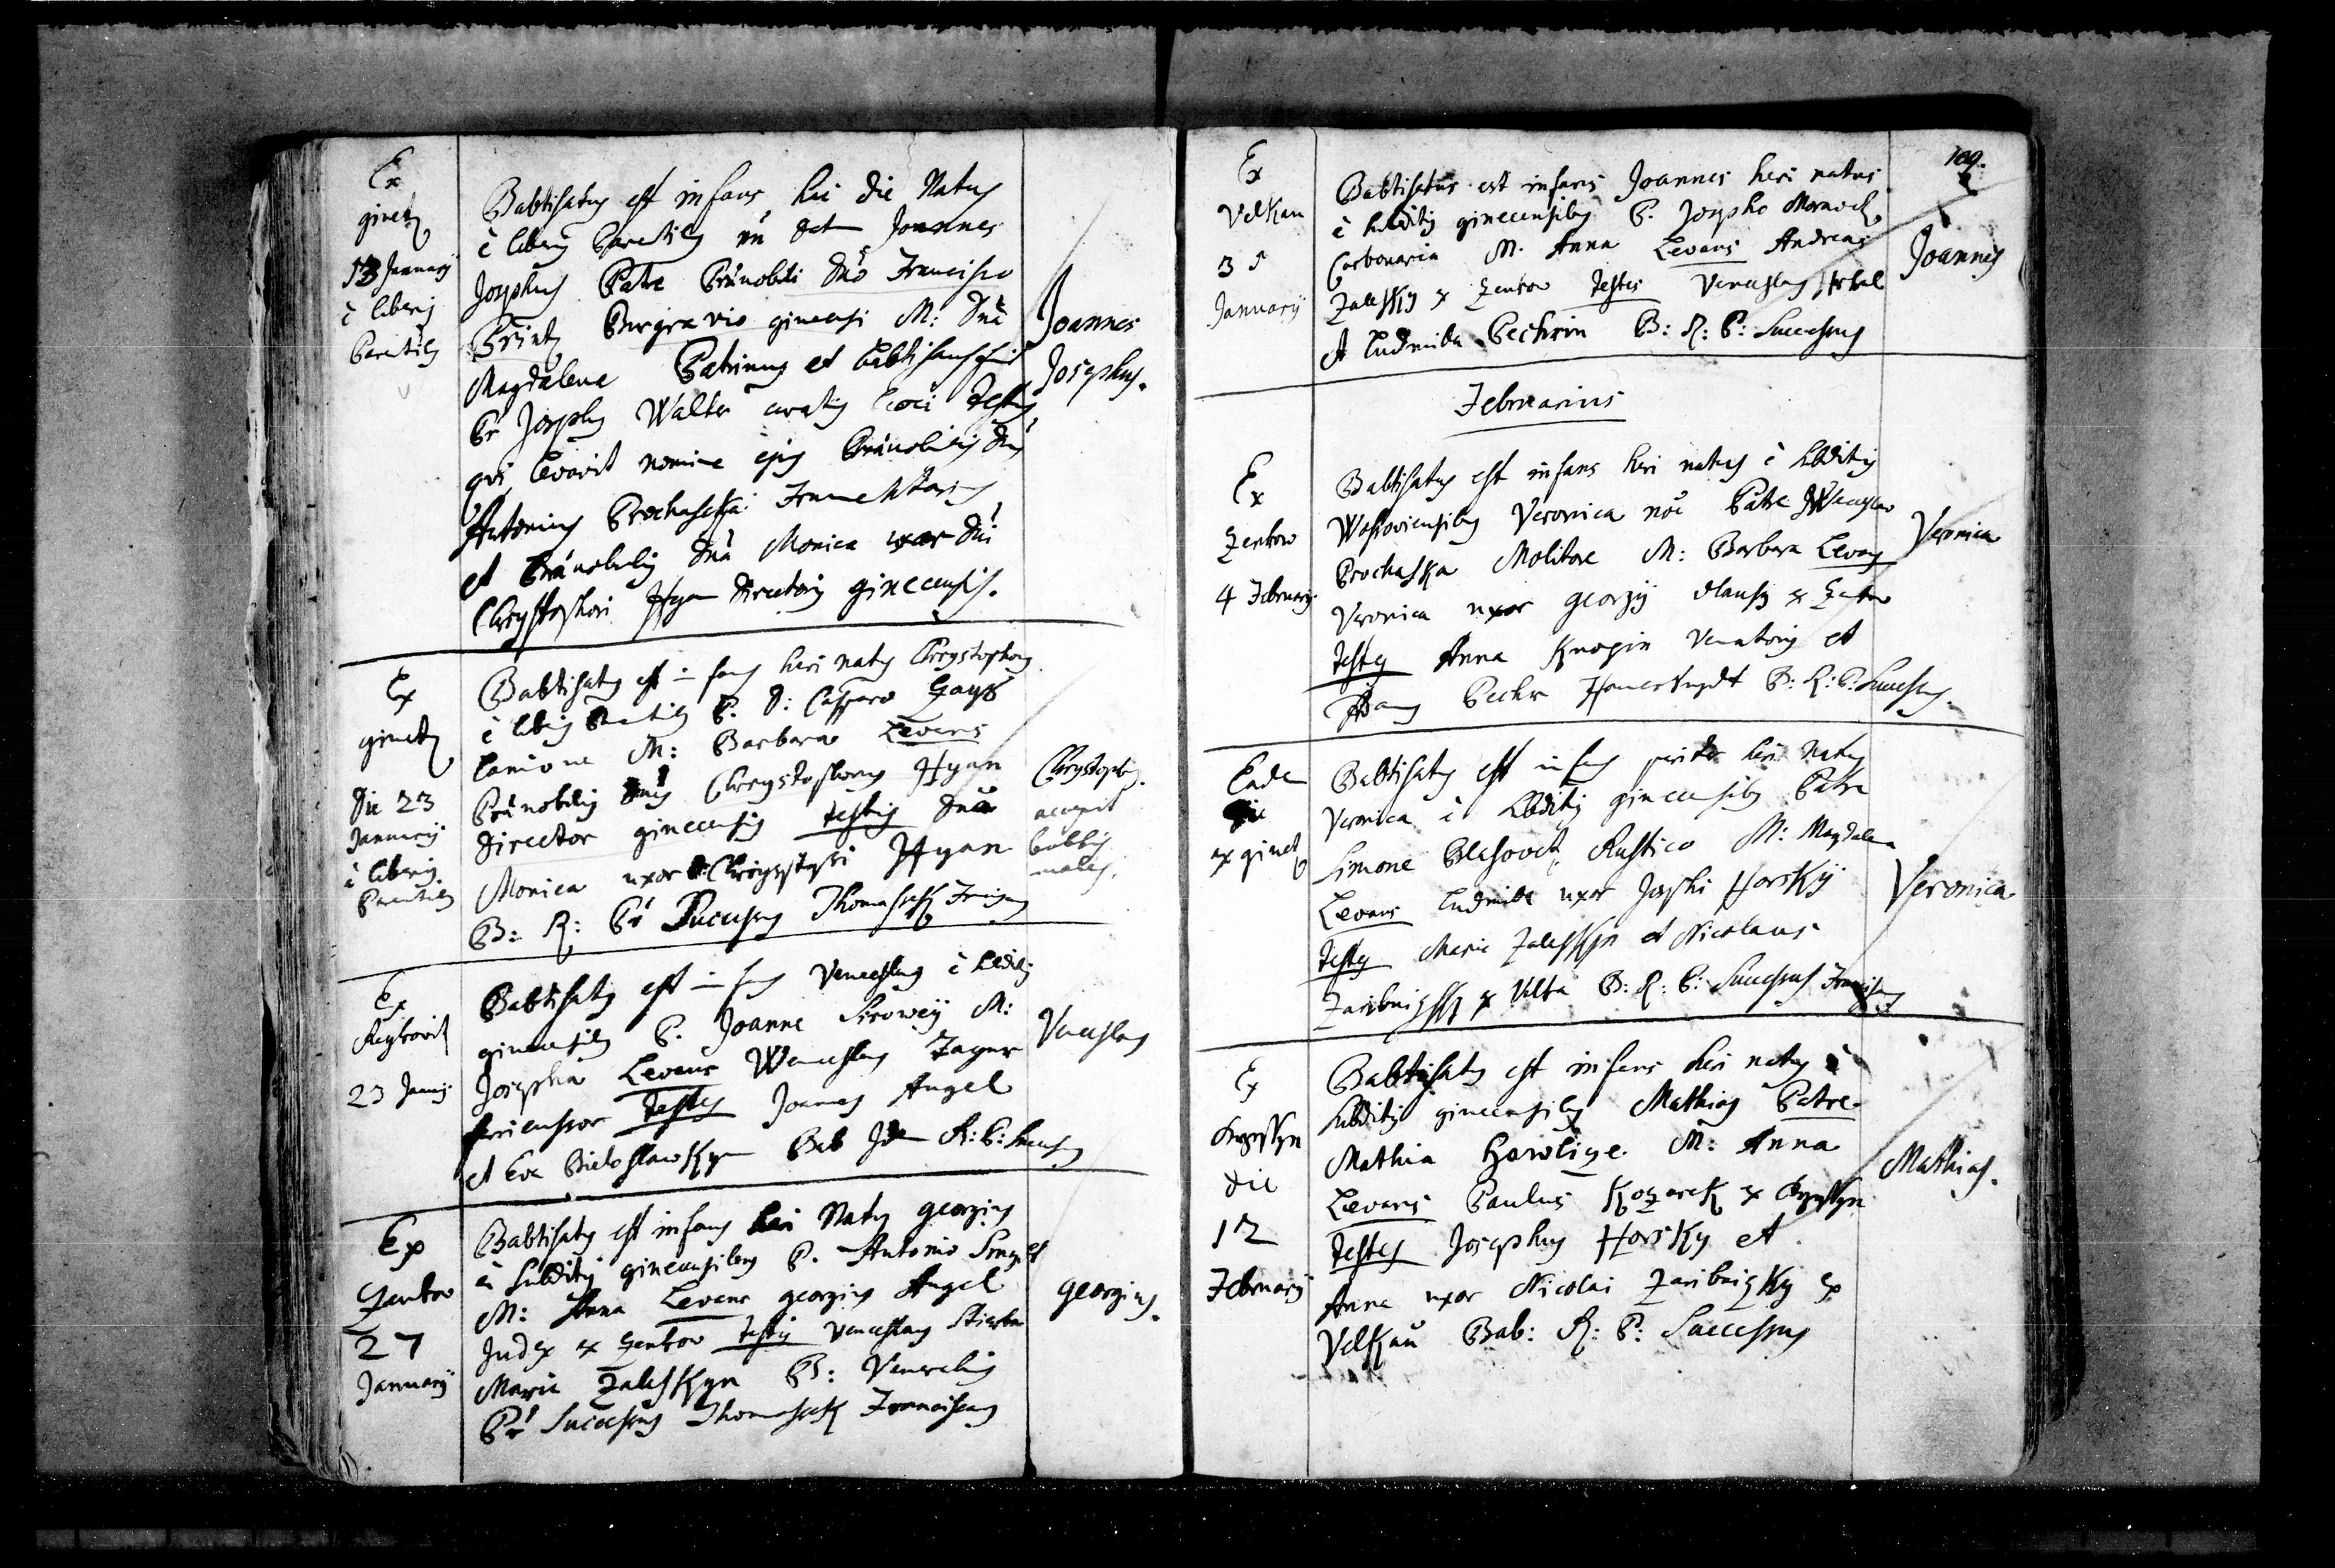 Ex
ginetz
13 Januarij
è liberis
Parentibus
Babtisatus est infans hac die Natus
è liberis Parentibus
Joannes
Josephus Patre Prænobili Dno Francisco
Printz Burgravio ginecensi M: Dna
Magdalena Patrinus et babtisans fuit
Pr Josephus Walter curatus loci Testes
qui levavit nomine ejus Prænobilis Dnus
Antonius Prochaska
et Prænobilis Dna Monica uxor Dni
Chrystophori Hyan Directoris ginecensis.
Joannes
Josephus.
Ex
ginetz
Die 23
Januarij
è liberis
Parentibus
Babtisatus est infans heri natus Chrystophorus
è liberis Parentibus P. D: Casparo Gayer
Lanione M: Barbara Levans
Prænobilis Dnus Chrystophorus Hyan
Director ginecensis testis Dna
Monica uxor D: Chrystophori Hyan
B: R: Pr Successus Thomaschek Franciscus
Chrystophus.
accepit
babtis
males.
Ex
Reykovitz
23 Januarij
Babtisatus est infans Venceslaus è subditis
ginecensibus P. Joanne Sirowÿ M:
Josepha Levans Wenceslaus Zayer
Testes Joannes Angel
et Eva Bieloslawskyn Bab Idem R: P: Successus
Venceslaus
Ex
Zentov
27
Januarij
Babtisatus est infans heri Natus georgius
è subditis ginecensibus P. Antonio
M: Anna Levans georgius Angel
Judex ex Zentov testis Venceslaus Stierba
Maria Zaleskyn B: Venerabilis
Pr Successus Thomaschek Franciscus
georgius.
109.
Ex
Velkau
31
Januarij
Babtisatus est infans Joannes heri natus
è subditis ginecensibus P. Josepho
Carbonario M. Anna Levans Andreas
Zalesky ex Zentov Testes Venceslaus
et Ludmila Pechrin B: R: P: Successus
Joannes
Februarius
Ex
Zentow
4 Februarij
Babtisatus est infans heri natus è subditis
Veronica noe Patre Wenceslao
Prochaska Molitore M: Barbara Levans
Veronica uxor georgij ex Zentov
testes Anna Knogin Venatoris et
Pechr B: R: P: Successus.
Veronica
Eadem
Die
ex ginetz
Babtisatus est infans pariter heri Natus
Veronica è subditis ginecensibus Patre
Simone Blahovetz, Rustico M: Magdalena
Levans Ludmila uxor Josephi Horskÿ
testes Maria Zaleskyn et Nicolaus
Zaribnizky ex Velka B: R: P: Successus Franciscus
Veronica
Ex
die
12
Februarij
Babtisatus est infans heri natus è
subditis ginecensibus Mathias Patre
Mathia Hawlige M: Anna
Levans Paulus Kozarek ex
testes Josephus Horsky et
Anna uxor Nicolai Zaribnizky ex
Velkau Bab: R: P: Successus
Mathias.